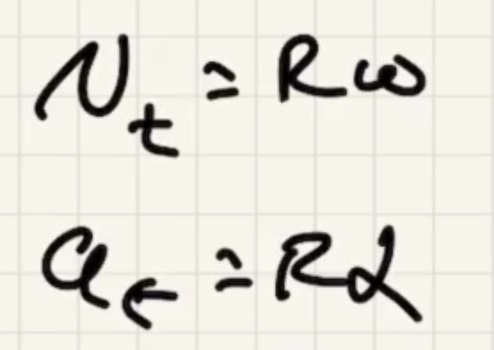 v_t = Rω
a_t = Rα